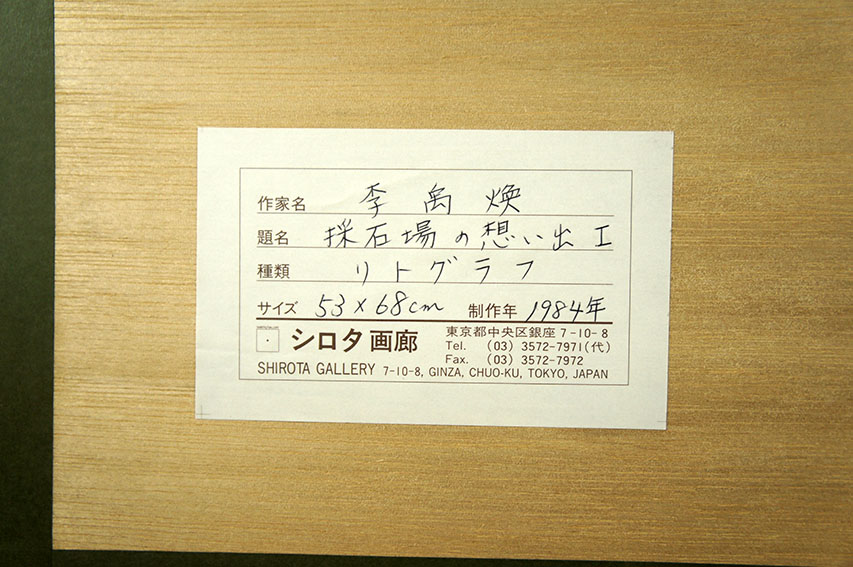 作家名 李禹煥
題名 採石場の想い出 I
種類 リトグラフ
サイズ 53×68cm 制作年 1984年
シロタ画廊 東京都中央区銀座 7-10-8
Tel. (03) 3572-7971(代)
Fax. (03) 3572-7972
SHIROTA GALLERY 7-10-8, GINZA, CHUO-KU, TOKYO, JAPAN